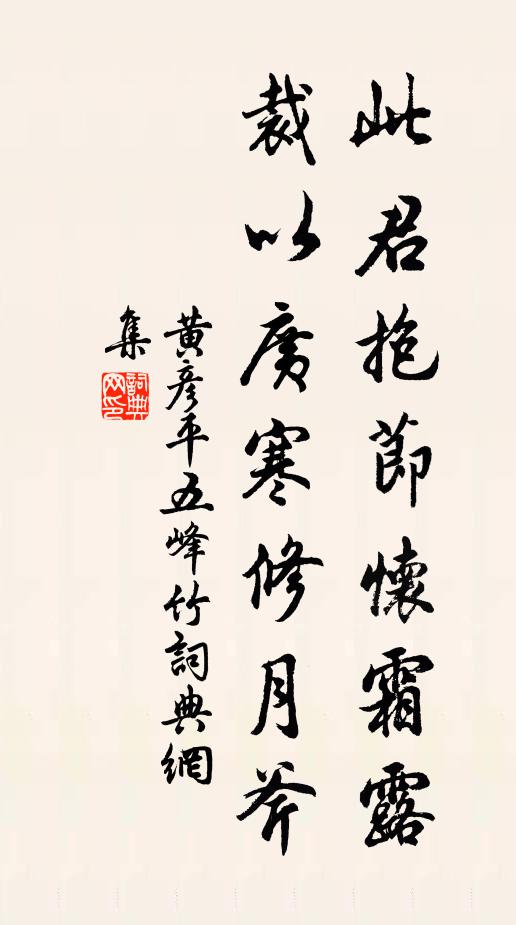 此君抱節懷霜露
裁以廣寒修月斧
黄彦平五峰竹詞典網
集
詞典网印